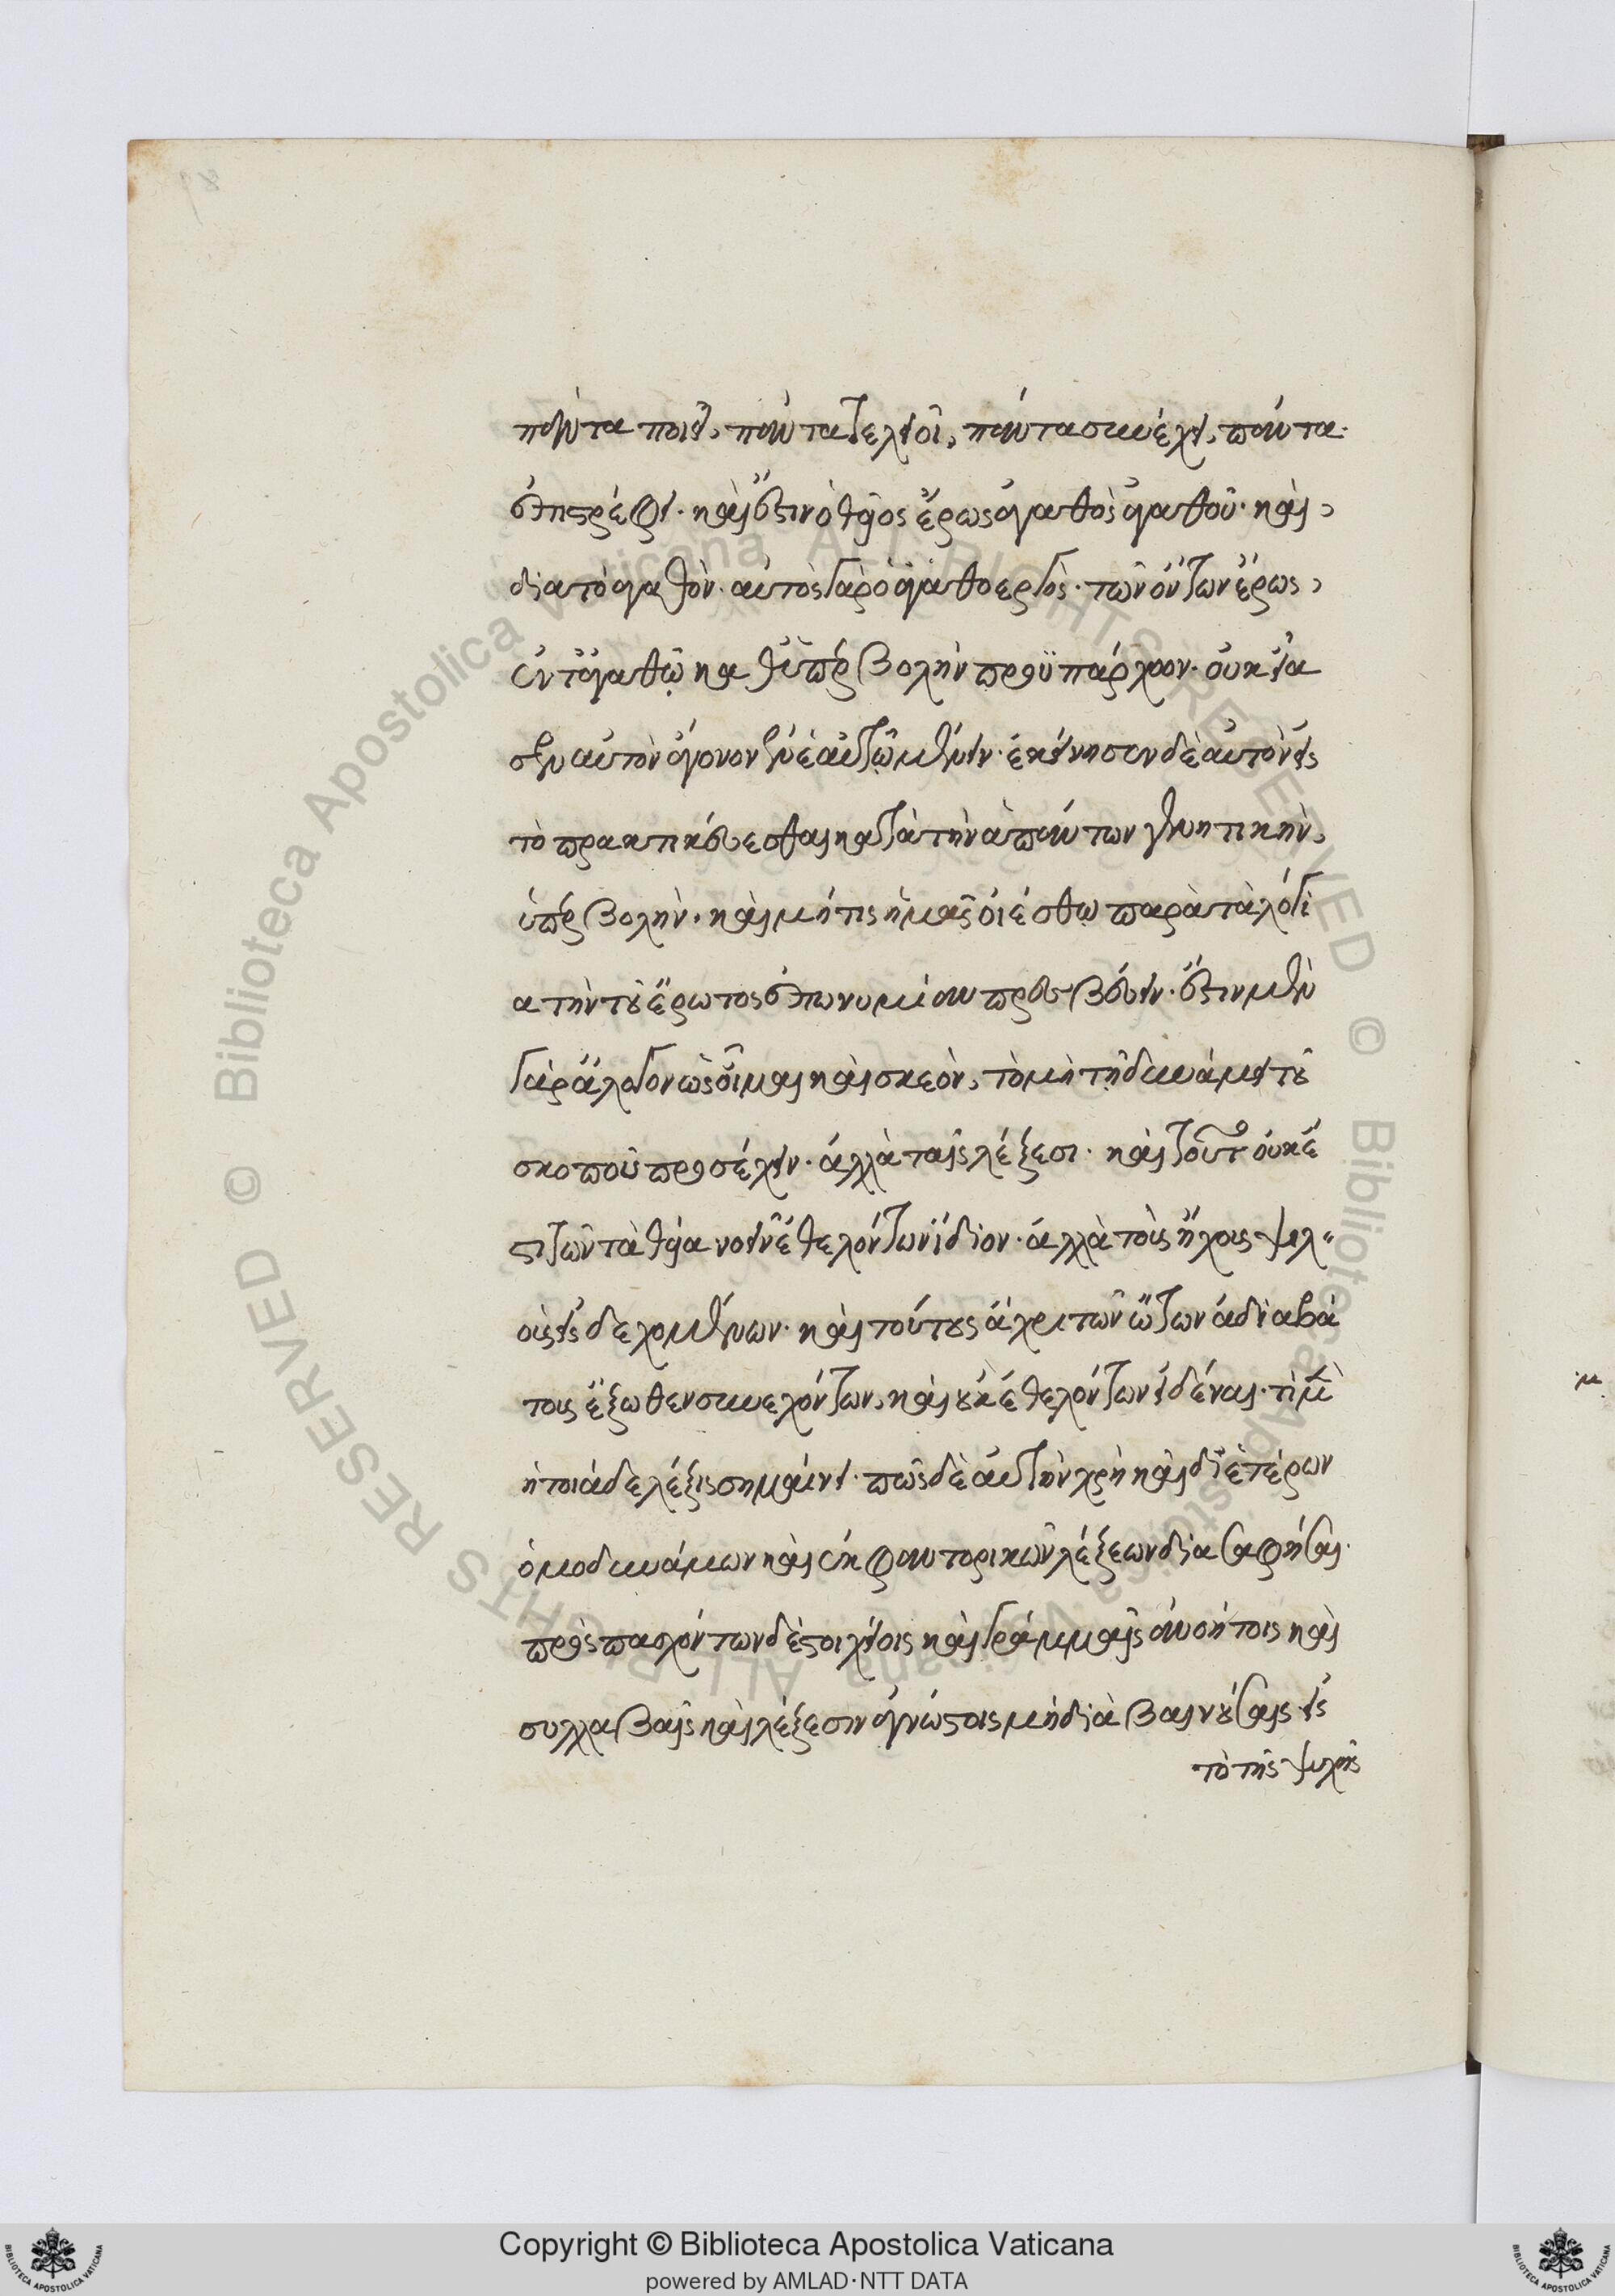 πάντα ποιεῖ, πάντα τελειοῖ, πάντα συνέχει, πάντα
ἐπιστρέφει. καὶ ἔστιν ὁ θεῖος ἔρως ἀγαθὸς ἀγαθοῦ. καὶ
διὰ τὸ ἀγαθόν. αὐτὸς γὰρ ὁ ἀγαθοεργὸς. τῶν ὄντων ἔρως
ἐν τἀγαθῷ καθ' ὑπερβολὴν προϋπάρχων. οὐκ εἴα
σεν αὐτὸν ἄγονον ἐν ἑαυτῷ μένειν. ἐκίνησεν δὲ αὐτὸν εἰς
τὸ πρακτικεύεσθαι κατὰ τὴν ἁπάντων γεννητικὴν
ὑπερβολὴν. καὶ μή τις ἡμᾶς οἰέσθω παρὰ τὰ λόγι
α τὴν τοῦ ἔρωτος ἐπωνυμίαν πρεσβεύειν. ἔστιν μὲν
γὰρ ἄλογον ὡς οἶμαι καὶ σκαιόν, τὸ μὴ τῇ δυνάμει τοῦ
σκοποῦ προσέχειν. ἀλλὰ ταῖς λέξεσι. καὶ τοῦτο οὐκ ἔ
στι τῶν τὰ θεῖα νοεῖν ἐθελόντων ἴδιον. ἀλλὰ τοῖς ἤχοις ψιλ
οῖς εἰσδεχομένων. καὶ τούτους ἄχρι τῶν ὤτων ἀδιαβά
τοις ἔξωθεν συνεχόντων, καὶ οὐκ ἐθελόντων εἰδέναι. τί μὲν
ἡ τοιάδε λέξις σημαίνει. πῶς δὲ αὐτὴν χρὴ καὶ δι' ἑτέρων
ὁμοδυνάμων καὶ ἐκφαντορικῶν λέξεων διασαφῆσαι.
προσπασχόντων δὲ στοιχείοις καὶ γράμμαῖς ἀνοήτοις καὶ
συλλαβαῖς καὶ λέξεσιν ἀγνώστοις μὴ διαβαινούσαις εἰς
τὸ τῆς ψυχῆς
Copyright © Biblioteca Apostolica Vaticana
powered by AMLAD·NTT DATA